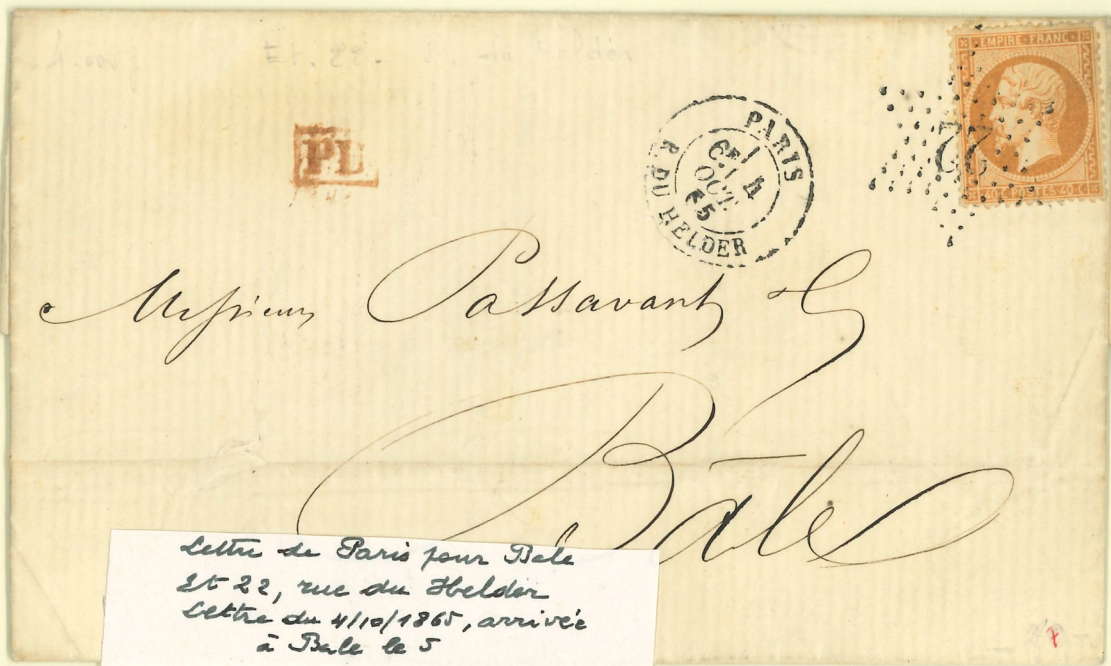 EMPIRE FRANC
40 C POSTES 40 C
22
PD
PARIS
4
OCT
65
R. DU HELDER
Messieurs Passavant & C
Bâle
Lettre de Paris pour Bale
Et 22, rue du Helder
Lettre du 4/10/1865, arrivée
à Bale le 5
7